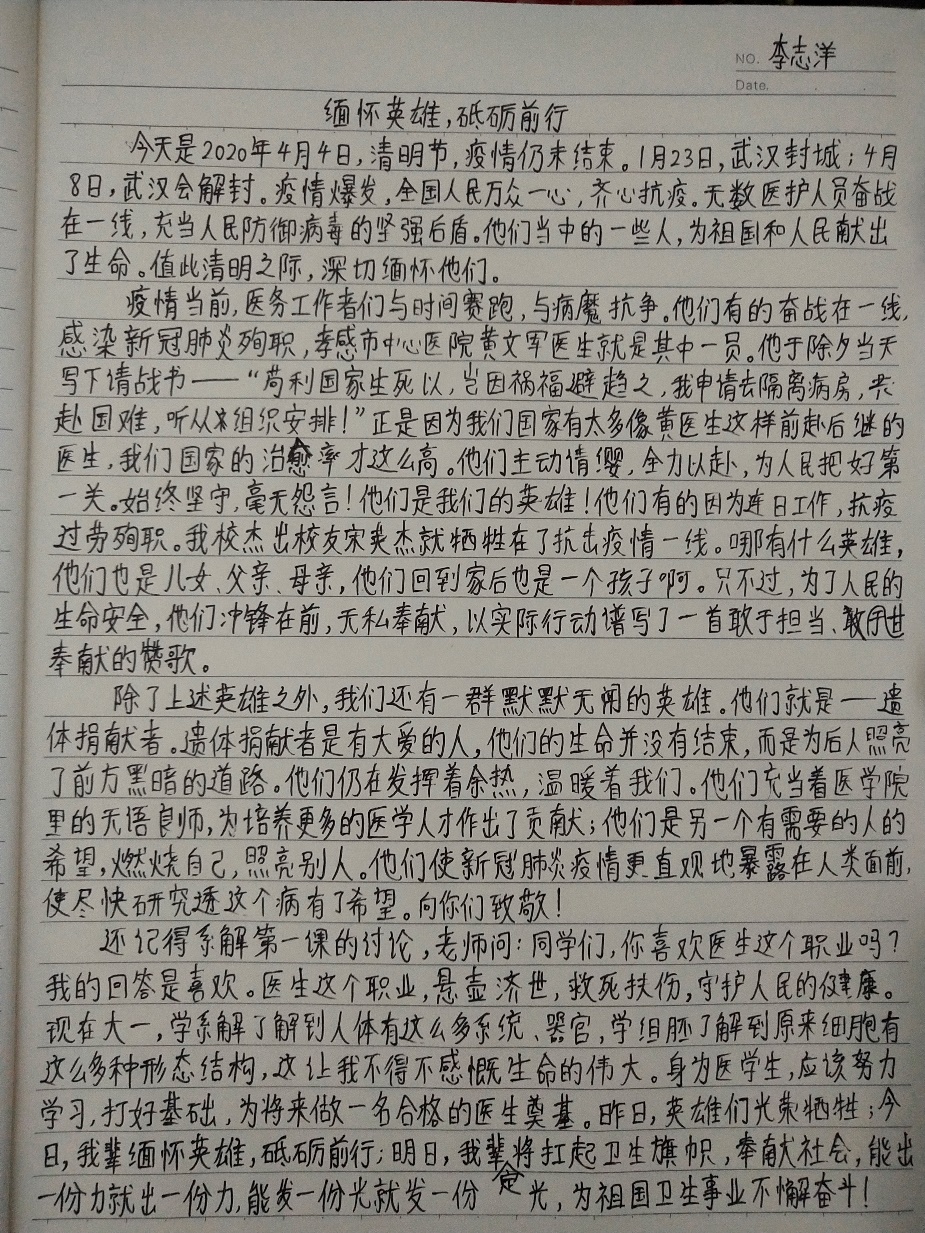 NO. 李志洋
Date.
缅怀英雄,砥砺前行
今天是2020年4月4日,清明节,疫情仍未结束。1月23日,武汉封城;4月
8日,武汉会解封。疫情爆发,全国人民万众一心,齐心抗疫。无数医护人员奋战
在一线,充当人民防御病毒的坚强后盾。他们当中的一些人,为祖国和人民献出
了生命。值此清明之际,深切缅怀他们。
疫情当前,医务工作者们与时间赛跑,与病魔抗争。他们有的奋战在一线,
感染新冠肺炎殉职,孝感市中心医院黄文军医生就是其中一员。他于除夕当天
写下请战书——“苟利国家生死以,岂因祸福避趋之,我申请去隔离病房,共
赴国难,听从组织安排!”正是因为我们国家有太多像黄医生这样前赴后继的
医生,我们国家的治愈率才这么高。他们主动请缨,全力以赴,为人民把好第
一关。始终坚守,毫无怨言!他们是我们的英雄!他们有的因为连日工作,抗疫
过劳殉职。我校杰出校友宋英杰就牺牲在了抗击疫情一线。哪有什么英雄,
他们也是儿女、父亲、母亲,他们回到家后也是一个孩子啊。只不过,为了人民的
生命安全,他们冲锋在前,无私奉献,以实际行动谱写了一首敢于担当、敢于
奉献的赞歌。
除了上述英雄之外,我们还有一群默默无闻的英雄。他们就是——遗
体捐献者。遗体捐献者是有大爱的人,他们的生命并没有结束,而是为后人照亮
了前方黑暗的道路。他们仍在发挥着余热,温暖着我们。他们充当着医学院
里的无语良师,为培养更多的医学人才作出了贡献;他们是另一个有需要的人的
希望,燃烧自己,照亮别人。他们使新冠肺炎疫情更直观地暴露在人类面前,
使尽快研究透这个病有了希望。向你们致敬!
还记得系解第一课的讨论,老师问:同学们,你喜欢医生这个职业吗?
我的回答是喜欢。医生这个职业,悬壶济世,救死扶伤,守护人民的健康。
现在大一,学系解了解到人体有这么多系统、器官,学组胚了解到原来细胞有
这么多种形态结构,这让我不得不感慨生命的伟大。身为医学生,应该努力
学习,打好基础,为将来做一名合格的医生奠基。昨日,英雄们光荣牺牲;今
日,我辈缅怀英雄,砥砺前行;明日,我辈定将扛起卫生旗帜,奉献社会,能出
一份力就出一份力,能发一份光就发一份光,为祖国卫生事业不懈奋斗!